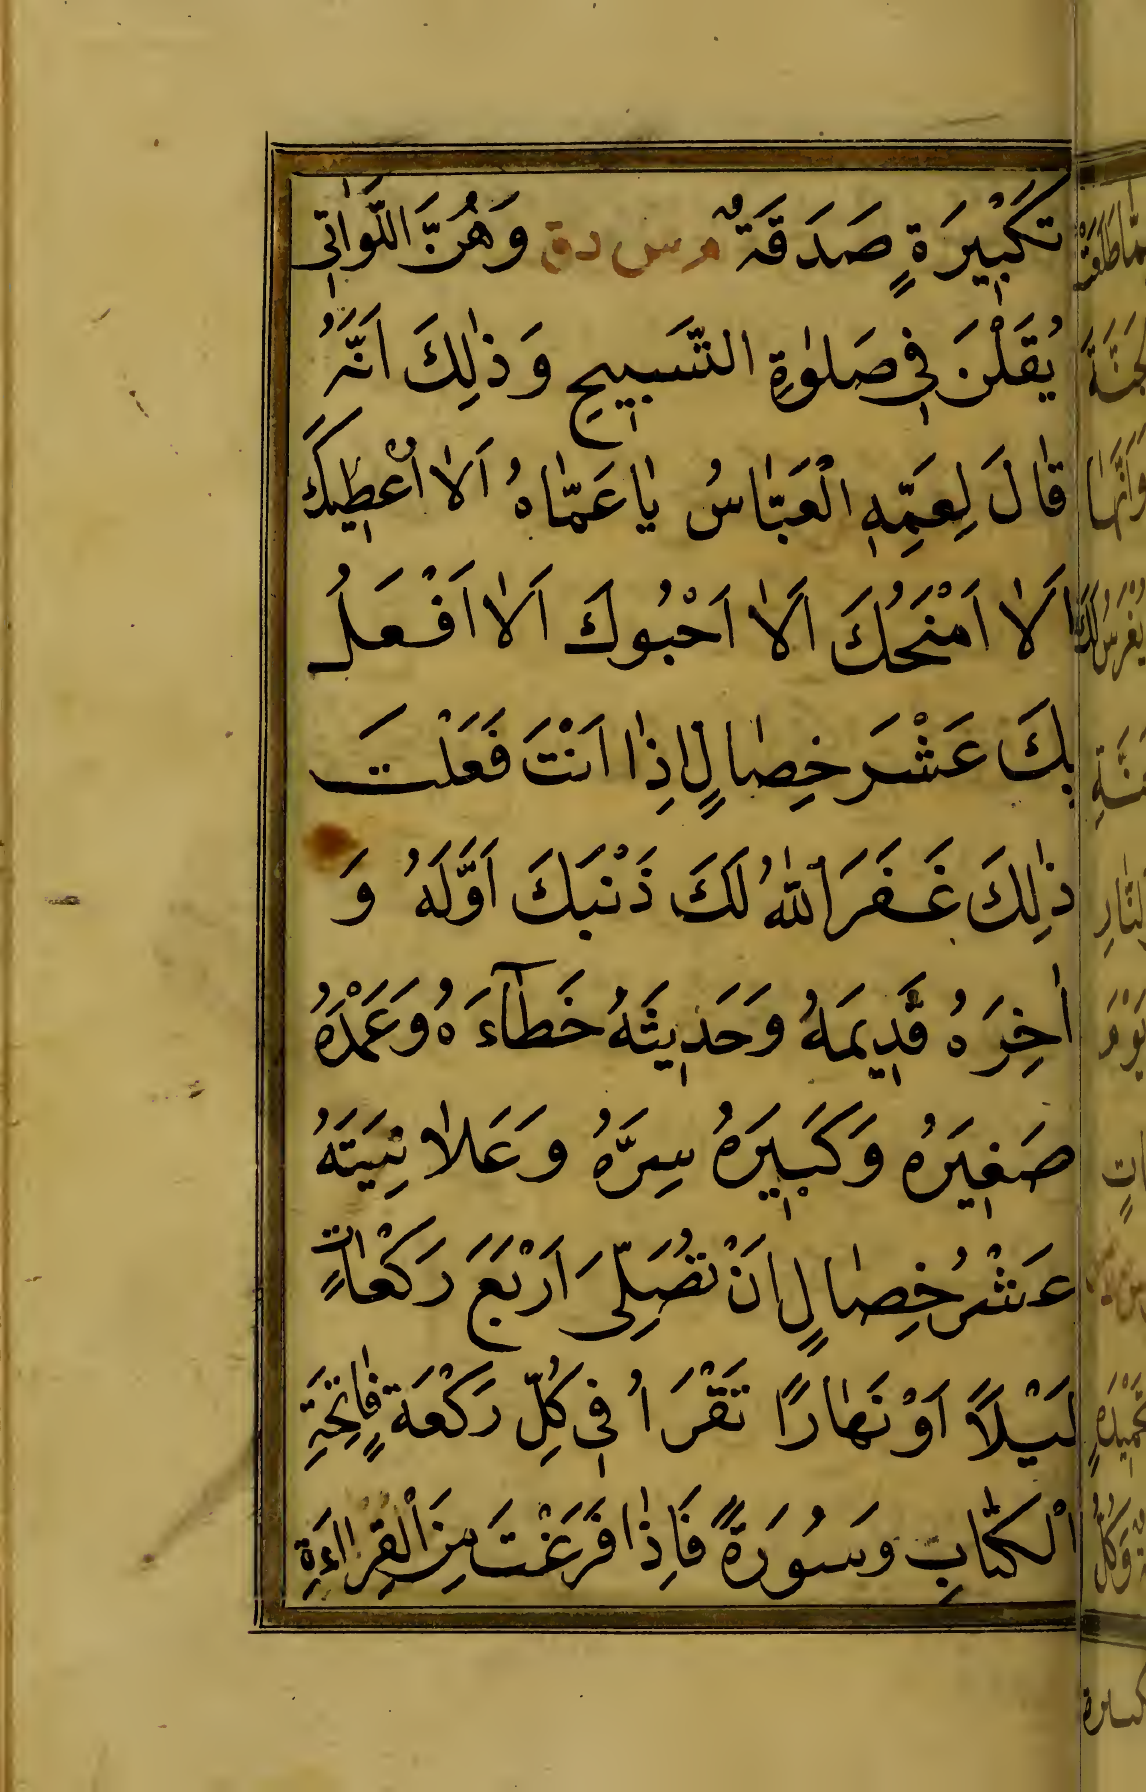 تَكْبِيرَةٍ صَدَقَةٌ م س د ق وَهُنَّ اللَّوَاتِي
يُقَلْنَ فِي صَلٰوةِ التَّسْبِيحِ وَذٰلِكَ اَنَّهُ
قَالَ لِعَمِّهِ الْعَبَّاسُ يَا عَمَّاهُ اَلَا اُعْطِيكَ
اَلَا اَمْنَحُكَ اَلَا اَحْبُوكَ اَلَا اَفْعَلُ
بِكَ عَشْرَ خِصَالٍ اِذَا اَنْتَ فَعَلْتَ
ذٰلِكَ غَفَرَ اللّٰهُ لَكَ ذَنْبَكَ اَوَّلَهُ وَ
اٰخِرَهُ قَدِيمَهُ وَحَدِيثَهُ خَطَآءَهُ وَعَمْدَهُ
صَغِيرَهُ وَكَبِيرَهُ سِرَّهُ وَعَلَانِيَتَهُ
عَشْرُ خِصَالٍ اَنْ تُصَلِّيَ اَرْبَعَ رَكْعَاتٍ
لَيْلًا اَوْ نَهَارًا تَقْرَاُ فِي كُلِّ رَكْعَةٍ فَاتِحَةِ
الْكِتَابِ وَسُورَةً فَاِذَا فَرَغْتَ مِنَ الْقِرَاءَةِ